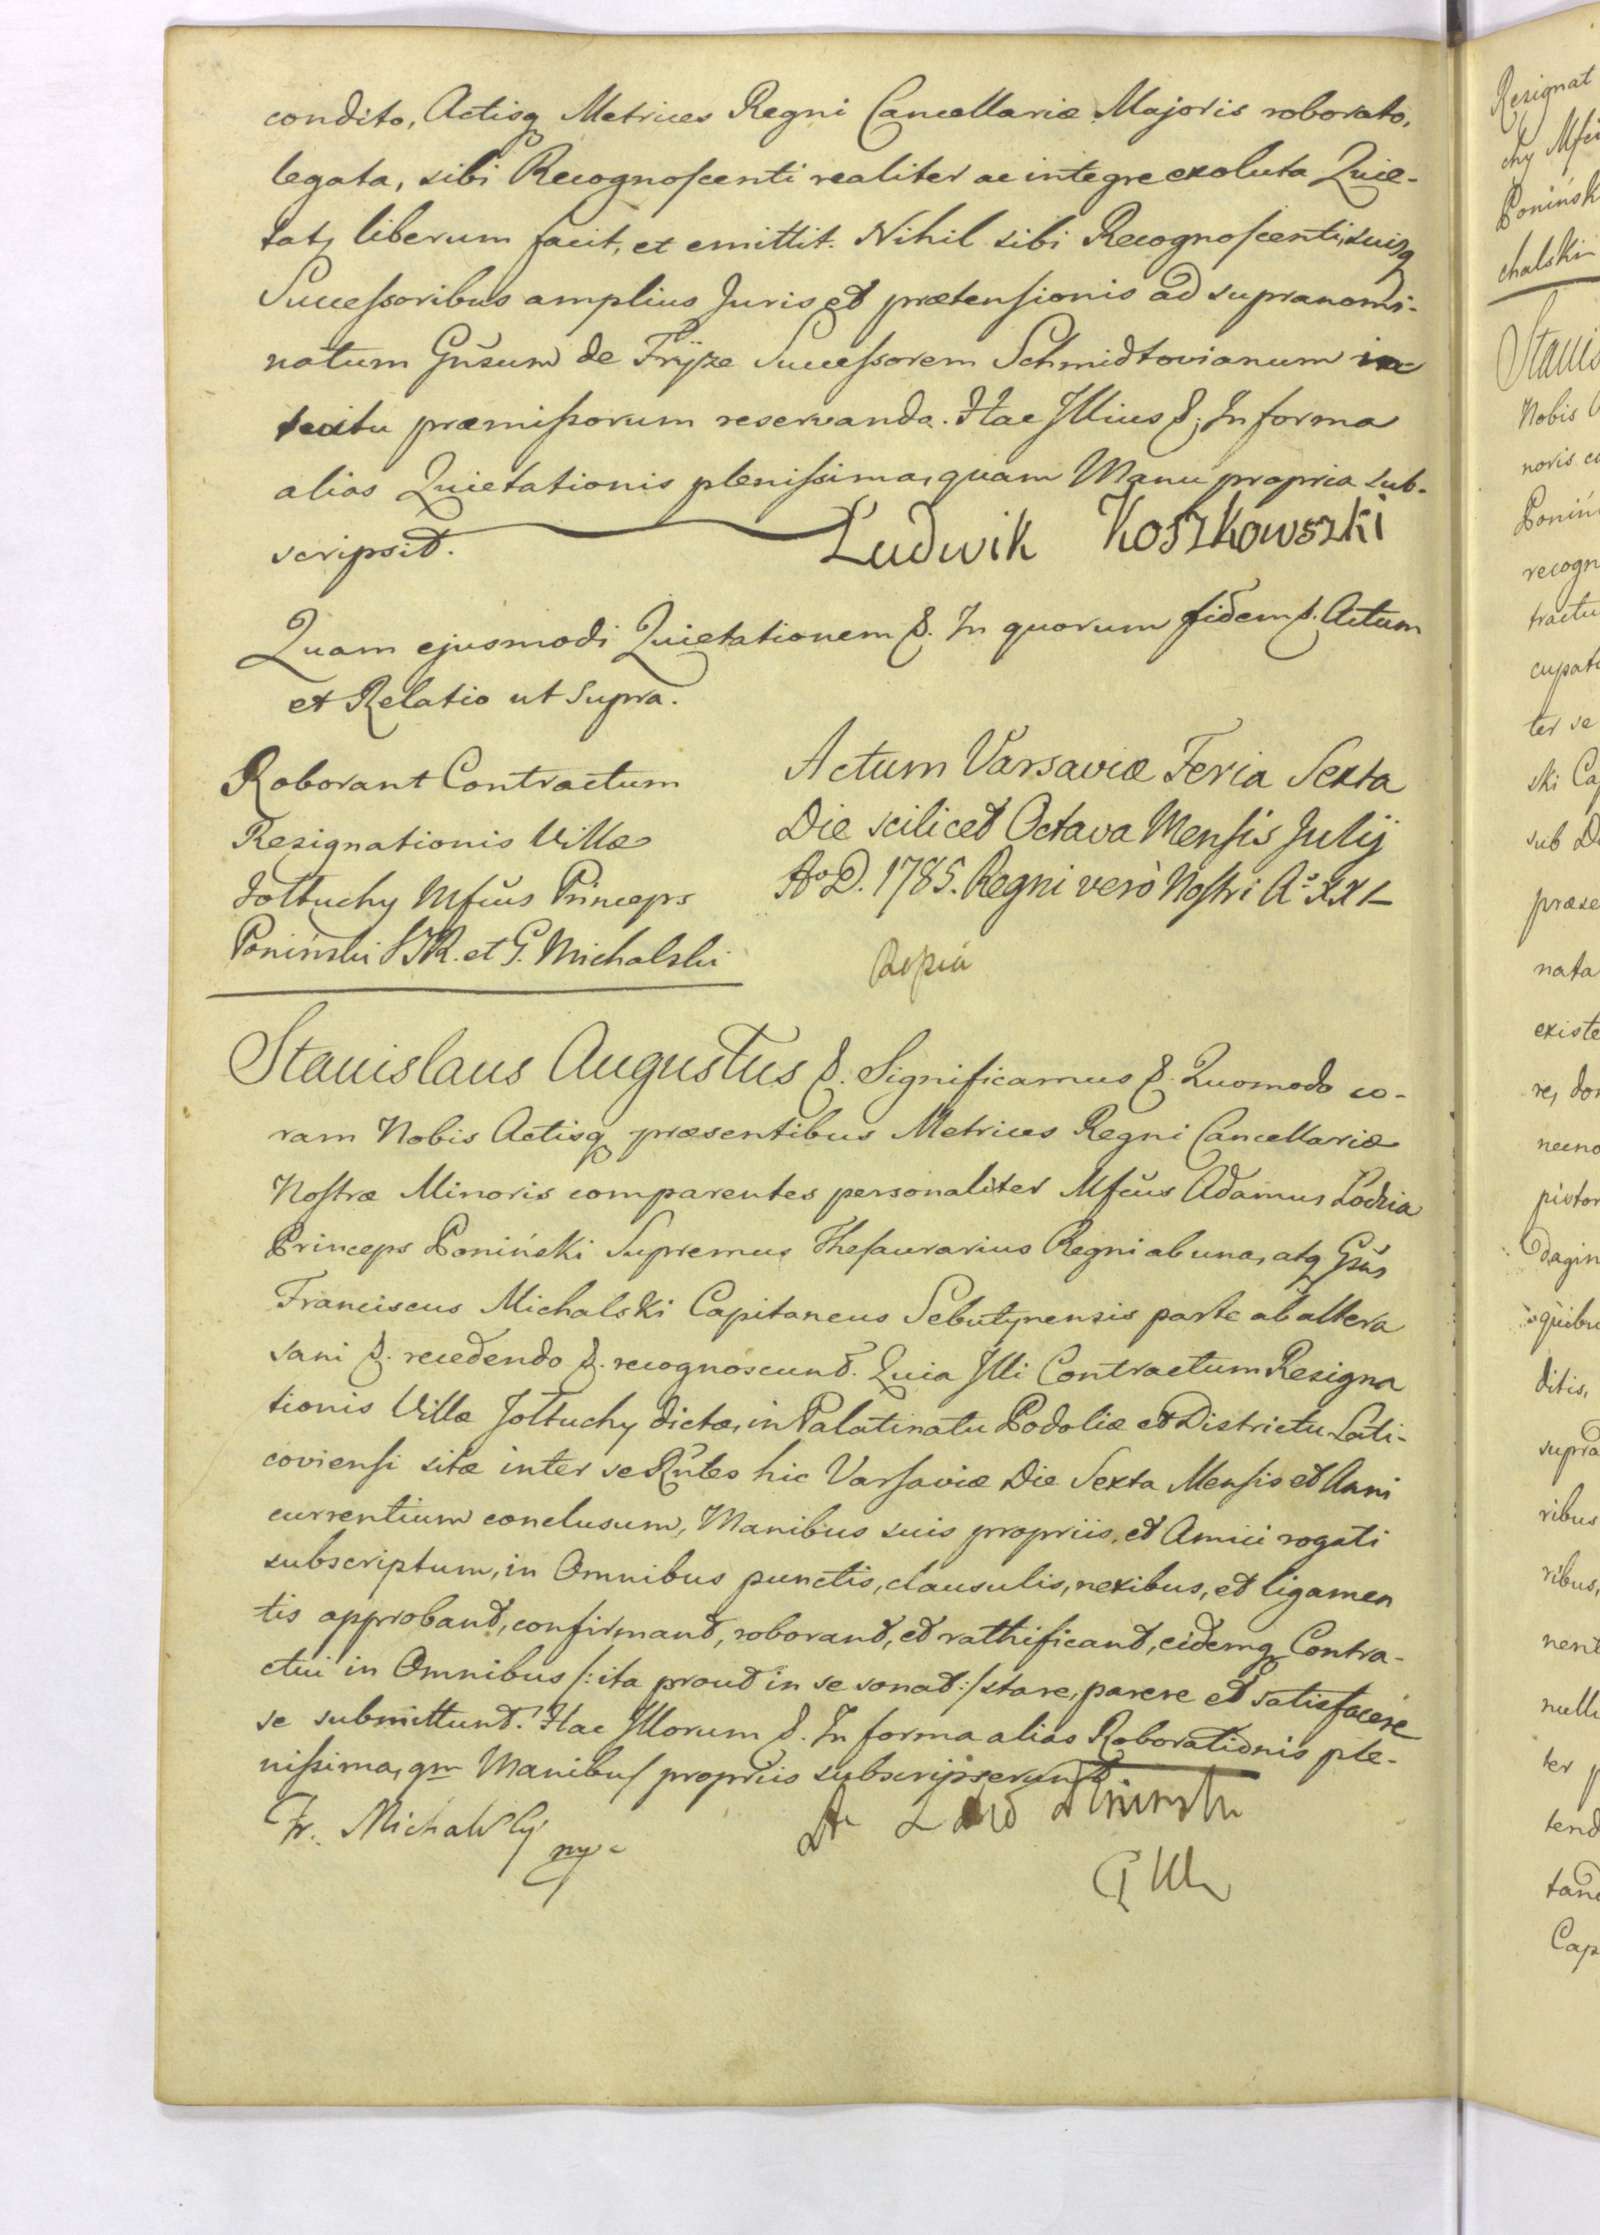 condito, Actisq Metrices Regni Cancellariæ Majoris roborato,
legata, sibi Recognoscenti realiter ac integre exoluta Quie-
tat, liberum facit, et emittit. Nihil sibi Recognoscenti, suisq
Successoribus amplius Juris et prætensionis ad supranomi-
natum Gnsum de Fryze Successorem Schmidtovianum in
tuitu præmissorum reservando. Hac Illius &. In forma
alias Quietationis plenissima, quam Manu propria sub-
scripsit. Ludwik Koszkowszki
Quam ejusmodi Quietationem &. In quorum fidem &. Actum
et Relatio ut Supra.
Roborant Contractum
Resignationis Villæ
Jołtuchy Mfcus Princeps
Poninski STR. et G. Michalski
Actum Varsaviæ Feria Sexta
Die scilicet Octava Mensis Julij
Ao D. 1785. Regni verò Nostri Ao XXI
Stanislaus Augustus &. Significamus &. Quomodo co-
ram Nobis Actisq præsentibus Metrices Regni Cancellariæ
Nostræ Minoris comparentes personaliter Mfcus Adamus Łodzia
Princeps Poniński Supremus Thesaurarius Regni ab una, atq Gsus
Franciscus Michalski Capitaneus Sebutynensis parte ab altera
sani &. recedendo &. recognoscunt. Quia Illi Contractum Resigna
tionis Villæ Jołtuchy dictæ, in Palatinatu Podoliæ et Districtu Lati-
coviensi sitæ inter se Rntes hic Varsaviæ Die Sexta Mensis et Anni
currentium conclusum, Manibus suis propriis, et Amici rogati
subscriptum, in Omnibus punctis, clausulis, nexibus, et ligamen
tis approbant, confirmant, roborant, et rathificant, eidemq Contra-
ctui in Omnibus /: ita prout in se sonat :/ stare, parere et satisfacere
se submittunt. Hac Illorum &. In forma alias Roborationis ple-
nissima, qm Manibus propriis subscripserunt
Fr. Michalsky
Resignat
chy Mfcu
Ponińsk
chalski
Stanis
Nobis
noris co
Ponińs
recogn
tractu
cupati
ter se
ski Cap
sub D
præse
nata
existe
re, don
necno
pistor
dagin
quibu
ditis,
supra
ribus
ribus,
nent
nulli
ter p
tend
tand
Cap